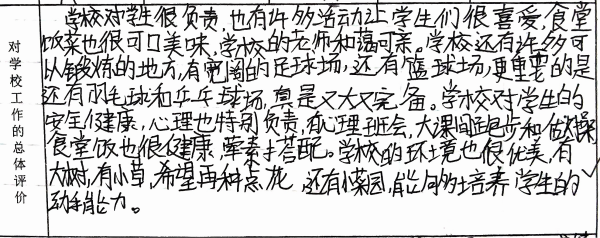 对学校工作的总体评价
学校对学生很负责,也有许多活动让学生们很喜爱,食堂
饭菜也很可口美味,学校的老师和蔼可亲。学校还有许多可
以锻炼的地方,有宽阔的足球场,还有篮球场,更重要的是
还有羽毛球和乒乓球场,真是又大又完备。学校对学生的
安全健康,心理也特别负责,有心理班会,大课间跑步和做操
食堂饭也很健康,荤素搭配。学校的环境也很优美,有
大树,有小草,希望再种点花,还有小菜园,能够培养学生的
动手能力。